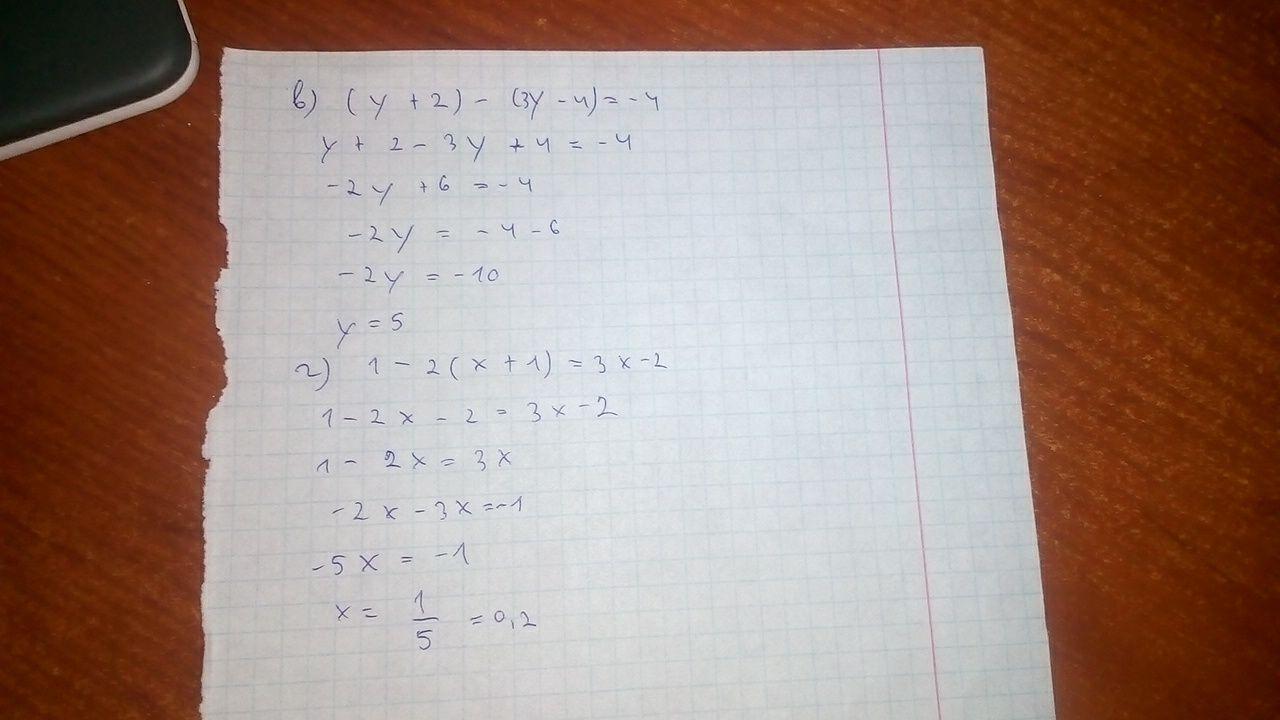 в) (y + 2) - (3y - 4) = -4
y + 2 - 3y + 4 = -4
-2y + 6 = -4
-2y = -4 - 6
-2y = -10
y = 5
г) 1 - 2(x + 1) = 3x - 2
1 - 2x - 2 = 3x - 2
1 - 2x = 3x
-2x - 3x = -1
-5x = -1
x = 1/5 = 0,2